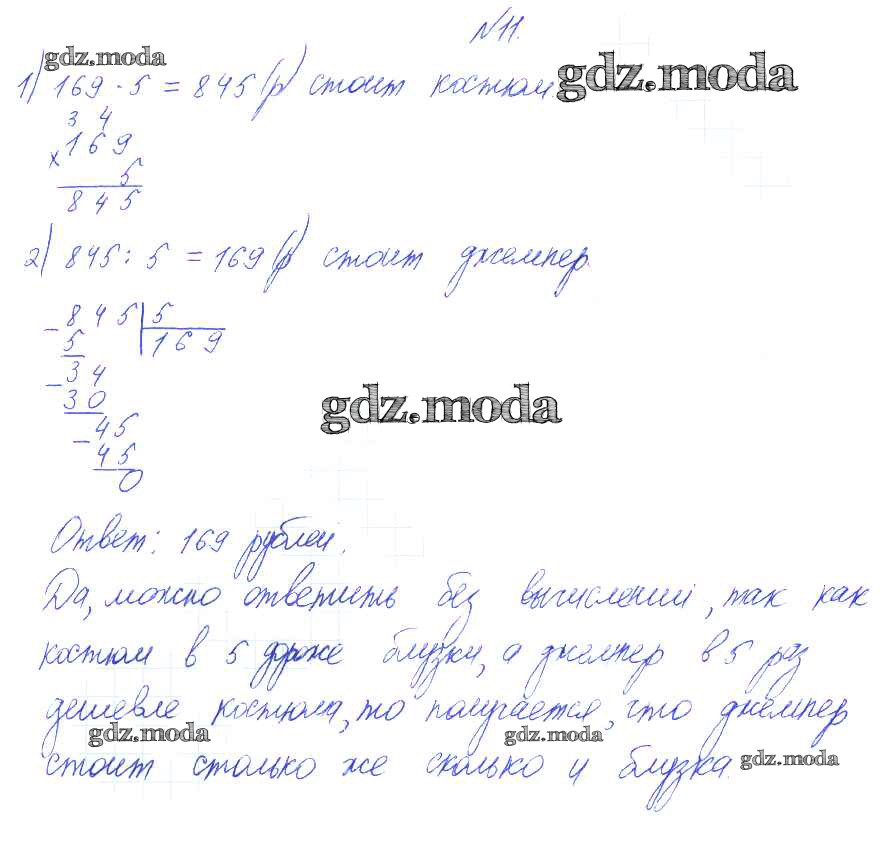 №11.
gdz.moda
1) 169 · 5 = 845 (р) стоит костюм. gdz.moda
3 4
× 169
5
845
2) 845 : 5 = 169 (р) стоит джемпер.
- 845 | 5
5 | 169
- 34
30
gdz.moda
- 45
45
0
Ответ: 169 рублей.
Да, можно ответить без вычислений, так как
костюм в 5 дороже блузки, а джемпер в 5 раз
дешевле костюма, то получается, что джемпер
gdz.moda gdz.moda
стоит столько же сколько и блузка. gdz.moda